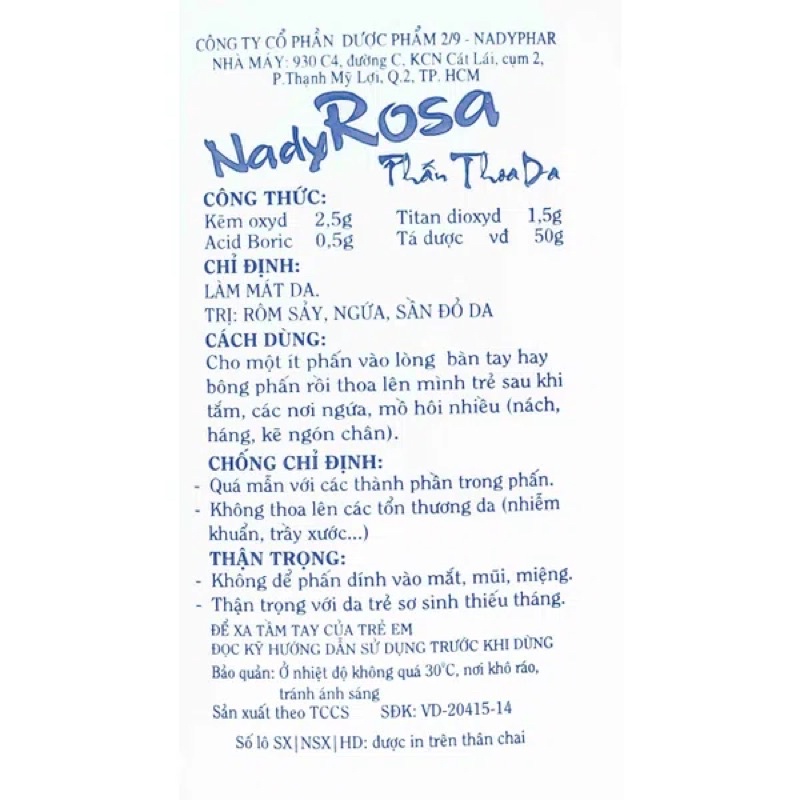 CÔNG TY CỔ PHẦN DƯỢC PHẨM 2/9 - NADYPHAR
NHÀ MÁY: 930 C4, đường C, KCN Cát Lái, cụm 2,
P.Thạnh Mỹ Lợi, Q.2, TP. HCM
NadyRosa
Phấn Thoa Da
CÔNG THỨC:
Kẽm oxyd 2,5g Titan dioxyd 1,5g
Acid Boric 0,5g Tá dược vđ 50g
CHỈ ĐỊNH:
LÀM MÁT DA.
TRỊ: RÔM SẢY, NGỨA, SẦN ĐỎ DA
CÁCH DÙNG:
Cho một ít phấn vào lòng bàn tay hay
bông phấn rồi thoa lên mình trẻ sau khi
tắm, các nơi ngứa, mồ hôi nhiều (nách,
háng, kẽ ngón chân).
CHỐNG CHỈ ĐỊNH:
- Quá mẫn với các thành phần trong phấn.
- Không thoa lên các tổn thương da (nhiễm
khuẩn, trầy xước...)
THẬN TRỌNG:
- Không để phấn dính vào mắt, mũi, miệng.
- Thận trọng với da trẻ sơ sinh thiếu tháng.
ĐỂ XA TẦM TAY CỦA TRẺ EM
ĐỌC KỸ HƯỚNG DẪN SỬ DỤNG TRƯỚC KHI DÙNG
Bảo quản: Ở nhiệt độ không quá 30°C, nơi khô ráo,
tránh ánh sáng
Sản xuất theo TCCS SĐK: VD-20415-14
Số lô SX|NSX|HD: được in trên thân chai